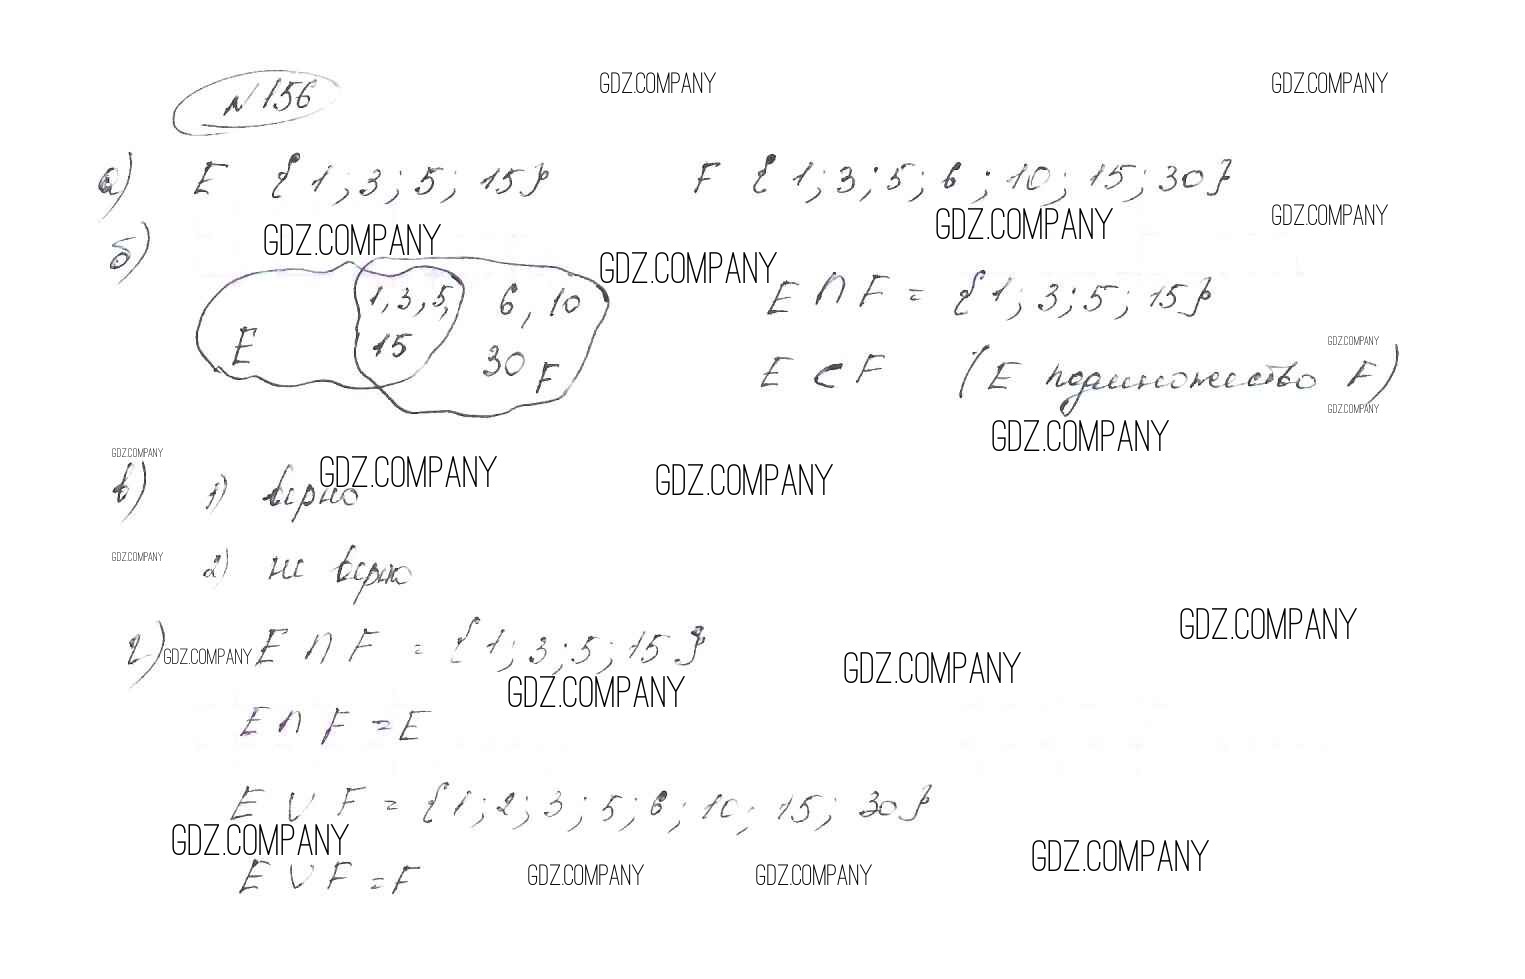 GDZ.COMPANY GDZ.COMPANY
N 156
а) E {1; 3; 5; 15} F {1; 3; 5; 6; 10; 15; 30}
GDZ.COMPANY GDZ.COMPANY GDZ.COMPANY
б) GDZ.COMPANY
1, 3, 5, 6, 10 E ∩ F = {1; 3; 5; 15}
GDZ.COMPANY
E 15 30 F E ⊂ F (E подмножество F)
GDZ.COMPANY
GDZ.COMPANY
GDZ.COMPANY
GDZ.COMPANY GDZ.COMPANY
в) 1) верно
GDZ.COMPANY
2) не верно
GDZ.COMPANY
г) E ∩ F = {1; 3; 5; 15}
GDZ.COMPANY GDZ.COMPANY
GDZ.COMPANY
E ∩ F = E
E ∪ F = {1; 2; 3; 5; 6; 10; 15; 30}
GDZ.COMPANY GDZ.COMPANY
E ∪ F = F GDZ.COMPANY GDZ.COMPANY